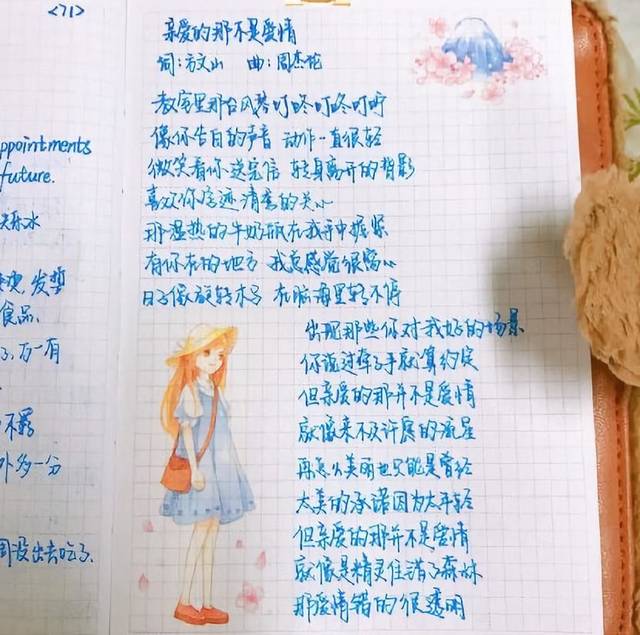 <71>
ppointments
future.
乐水
发誓
食品、
了,万一有
外多一分
没出去吃了.
亲爱的那不是爱情
词:方文山 曲:周杰伦
教室里那台风琴叮咚叮咚叮咛
像你告白的声音 动作一直很轻
微笑看你送完信 转身离开的背影
喜欢你字迹清秀的关心
那温热的牛奶瓶在我手中握紧
有你在的地方 我总感觉很窝心
日子像旋转木马 在脑海里转不停
出现那些你对我好的场景
你说过牵了手就算约定
但亲爱的那并不是爱情
就像来不及许愿的流星
再怎么美丽也只能是曾经
太美的承诺因为太年轻
但亲爱的那并不是爱情
就像是精灵住错了森林
那爱情错的很透明